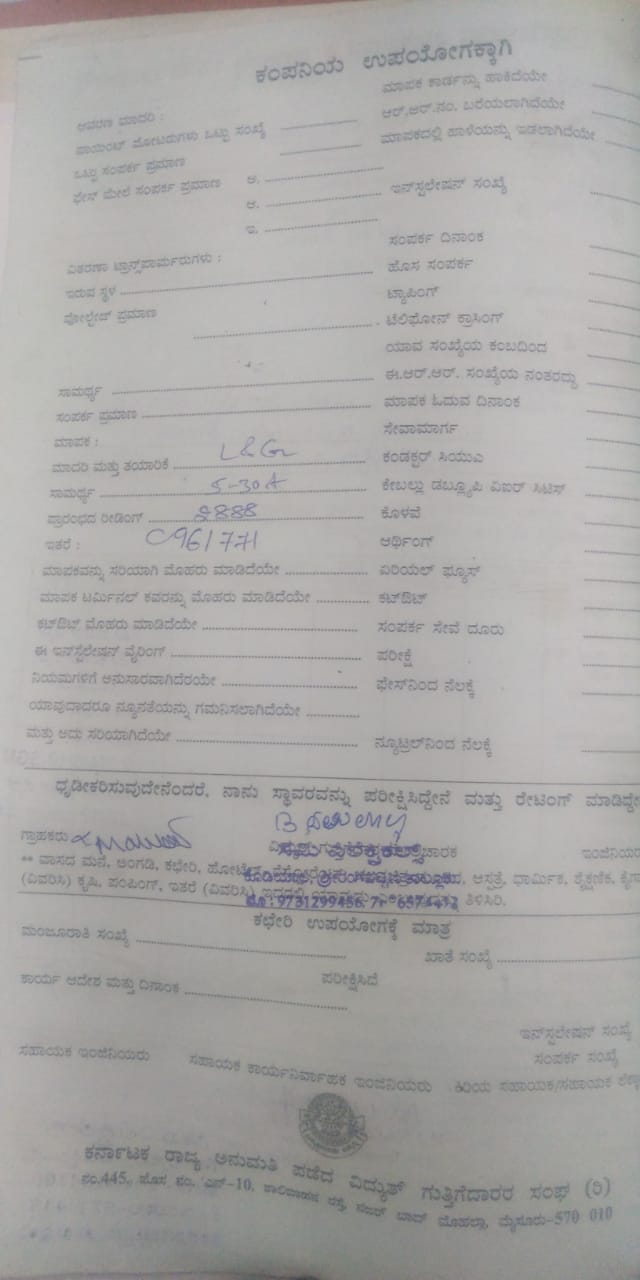 ಕಂಪನಿಯ ಉಪಯೋಗಕ್ಕಾಗಿ
ಮಾಪಕ ಕಾರ್ಡನ್ನು ಹಾಕಿದೆಯೇ
ಆವರಣ ಮಾದರಿ :
ಆರ್.ಆರ್.ನಂ. ಬರೆಯಲಾಗಿದೆಯೇ
ಪಾಯಿಂಟ್ ಮೋಟರುಗಳು ಒಟ್ಟು ಸಂಖ್ಯೆ
ಮಾಪಕದಲ್ಲಿ ಹಾಳೆಯನ್ನು ಇಡಲಾಗಿದೆಯೇ
ಒಟ್ಟು ಸಂಪರ್ಕ ಪ್ರಮಾಣ
ಫೇಸ್ ಮೇಲೆ ಸಂಪರ್ಕ ಪ್ರಮಾಣ ಅ.
ಇನ್‌ಸ್ಟಲೇಷನ್ ಸಂಖ್ಯೆ
ಆ.
ಇ.
ಸಂಪರ್ಕ ದಿನಾಂಕ
ವಿತರಣಾ ಟ್ರಾನ್ಸ್‌ಫಾರ್ಮರುಗಳು :
ಹೊಸ ಸಂಪರ್ಕ
ಇರುವ ಸ್ಥಳ
ಟ್ಯಾಪಿಂಗ್
ವೋಲ್ಟೇಜ್ ಪ್ರಮಾಣ
ಟೆಲಿಫೋನ್ ಕ್ರಾಸಿಂಗ್
ಯಾವ ಸಂಖ್ಯೆಯ ಕಂಬದಿಂದ
ಸಾಮರ್ಥ್ಯ
ಈ.ಆರ್.ಆರ್. ಸಂಖ್ಯೆಯ ನಂತರದ್ದು
ಸಂಪರ್ಕ ಪ್ರಮಾಣ
ಮಾಪಕ ಓದುವ ದಿನಾಂಕ
ಮಾಪಕ :
ಸೇವಾಮಾರ್ಗ
ಮಾದರಿ ಮತ್ತು ತಯಾರಿಕೆ L&G
ಕಂಡಕ್ಟರ್ ಸಿಯುಎ
ಸಾಮರ್ಥ್ಯ 5-30A
ಕೇಬಲ್ಲು ಡಬ್ಲ್ಯೂಪಿ ಏಐರ್ ಸಿಟಿಸ್
ಪ್ರಾರಂಭದ ರೀಡಿಂಗ್ 8888
ಕೊಳವೆ
ಇತರೆ : C961771
ಆರ್ಥಿಂಗ್
ಮಾಪಕವನ್ನು ಸರಿಯಾಗಿ ಮೊಹರು ಮಾಡಿದೆಯೇ
ಏರಿಯಲ್ ಫ್ಯೂಸ್
ಮಾಪಕ ಟರ್ಮಿನಲ್ ಕವರನ್ನು ಮೊಹರು ಮಾಡಿದೆಯೇ
ಕಟ್‌ಔಟ್
ಕಟ್‌ಔಟ್ ಮೊಹರು ಮಾಡಿದೆಯೇ
ಸಂಪರ್ಕ ಸೇವೆ ದೂರು
ಈ ಇನ್‌ಸ್ಟಲೇಷನ್ ವೈರಿಂಗ್
ಪರೀಕ್ಷೆ
ನಿಯಮಗಳಿಗೆ ಅನುಸಾರವಾಗಿದೆಯೇ
ಫೇಸ್‌ನಿಂದ ನೆಲಕ್ಕೆ
ಯಾವುದಾದರೂ ನ್ಯೂನತೆಯನ್ನು ಗಮನಿಸಲಾಗಿದೆಯೇ
ಮತ್ತು ಅದು ಸರಿಯಾಗಿದೆಯೇ
ನ್ಯೂಟ್ರಲ್‌ನಿಂದ ನೆಲಕ್ಕೆ
ಧೃಡೀಕರಿಸುವುದೇನೆಂದರೆ, ನಾನು ಸ್ಥಾವರವನ್ನು ಪರೀಕ್ಷಿಸಿದ್ದೇನೆ ಮತ್ತು ರೇಟಿಂಗ್ ಮಾಡಿದ್ದೇ
ಗ್ರಾಹಕರು
ಇಂಜಿನಿಯರ
** ವಾಸದ ಮನೆ, ಅಂಗಡಿ, ಕಛೇರಿ, ಹೋಟೆಲ್, ಆಸ್ಪತ್ರೆ, ಧಾರ್ಮಿಕ, ಶೈಕ್ಷಣಿಕ, ಕೈಗಾ
(ವಿವರಿಸಿ) ಕೃಷಿ, ಪಂಪಿಂಗ್, ಇತರೆ (ವಿವರಿಸಿ) ತಿಳಿಸಿರಿ.
ಮೊ : 9731299456
ಕಛೇರಿ ಉಪಯೋಗಕ್ಕೆ ಮಾತ್ರ
ಮಂಜೂರಾತಿ ಸಂಖ್ಯೆ
ಖಾತೆ ಸಂಖ್ಯೆ
ಕಾರ್ಯ ಆದೇಶ ಮತ್ತು ದಿನಾಂಕ
ಪರೀಕ್ಷಿಸಿದೆ
ಇನ್‌ಸ್ಟಲೇಷನ್ ಸಂಖ್ಯೆ
ಸಂಪರ್ಕ ಸಂಖ್ಯೆ
ಸಹಾಯಕ ಇಂಜಿನಿಯರು ಸಹಾಯಕ ಕಾರ್ಯನಿರ್ವಾಹಕ ಇಂಜಿನಿಯರು ಕಿರಿಯ ಸಹಾಯಕ/ಸಹಾಯಕ
ಕರ್ನಾಟಕ ರಾಜ್ಯ ಅನುಮತಿ ಪಡೆದ ವಿದ್ಯುತ್ ಗುತ್ತಿಗೆದಾರರ ಸಂಘ (ರಿ)
ನಂ.445, ಹೊಸ ನಂ. ಎನ್-10, ಕಾಲಿದಾಸನ ರಸ್ತೆ, ನಜರ್ ಬಾದ್ ಮೊಹಲ್ಲಾ, ಮೈಸೂರು-570 010